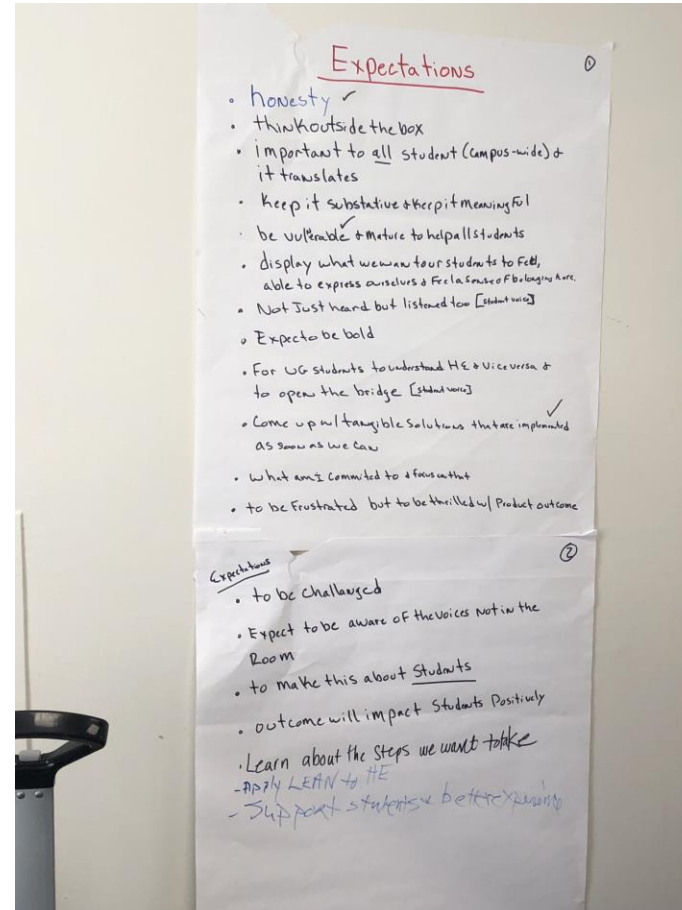 Expectations ①
• honesty ✓
• think outside the box
• important to all student (campus-wide) &
it translates
• Keep it substative & keep it meaningful
• be vulerable ✓ & mature to help all students
• display what we wan tour students to feel,
able to express ourselves & Feel a sense of belonging here.
• Not Just heard but listened too [student voice]
• Expect to be bold
• For UG students to understand HE & vice versa &
to open the bridge [student voice]
• Come up w/ tangible Solutions that are implemented ✓
as soon as we can
• what am I commited to & focus on that
• to be Frustrated but to be thrilled w/ Product outcome
Expectations ②
• to be challanged
• Expect to be aware of the voices Not in the
Room
• to make this about Students
• outcome will impact Students Positively
• Learn about the steps we want to take
- Apply LEAN to HE
- Support students & better experience